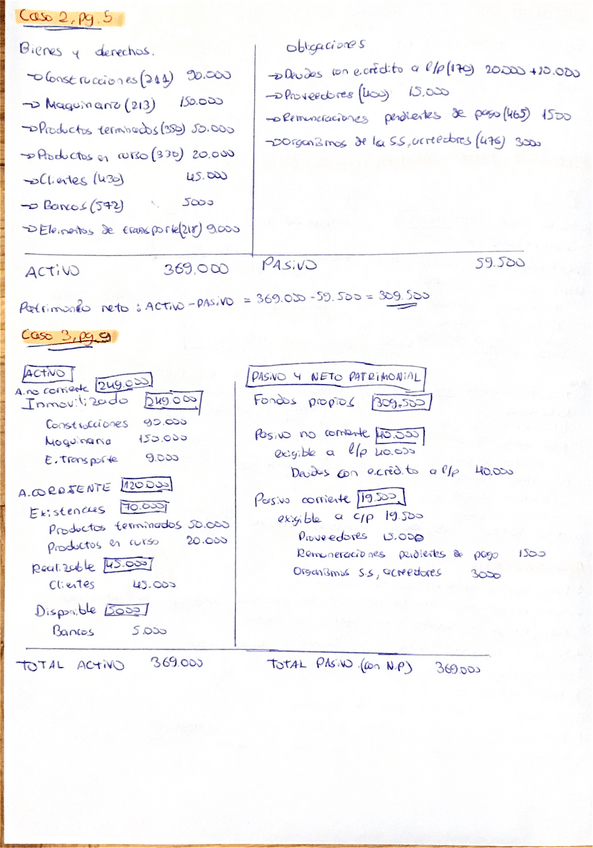 Caso 2, pg. 5
Bienes y derechos.
→ Construcciones (211) 90.000
→ Maquinaria (213) 150.000
→ Productos terminados (350) 50.000
→ Productos en curso (330) 20.000
→ Clientes (430) 45.000
→ Bancos (572) 5000
→ Elementos de transporte (218) 9.000
obligaciones
→ Deudas con e.crédito a l/p (170) 20.000 + 20.000
→ Proveedores (400) 15.000
→ Remuneraciones pendientes de pago (465) 1500
→ Organismos de la S.S, acreedores (476) 3000
ACTIVO 369.000
PASIVO 59.500
Patrimonio neto : ACTIVO - PASIVO = 369.000 - 59.500 = 309.500
Caso 3, pg 9
ACTIVO
A. no corriente 249.000
Inmovilizado 249.000
Construcciones 90.000
Maquinaria 150.000
E. Transporte 9.000
A. CORRIENTE 120.000
Existencias 70.000
Productos terminados 50.000
Productos en curso 20.000
Realizable 45.000
Clientes 45.000
Disponible 5000
Bancos 5.000
PASIVO Y NETO PATRIMONIAL
Fondos propios 309.500
Pasivo no corriente 40.000
exigible a l/p 40.000
Deudas con e.crédito a l/p 40.000
Pasivo corriente 19.500
exigible a c/p 19.500
Proveedores 15.000
Remuneraciones pendientes de pago 1500
Organismos S.S, acreedores 3000
TOTAL ACTIVO 369.000
TOTAL PASIVO (con N.P) 369.000